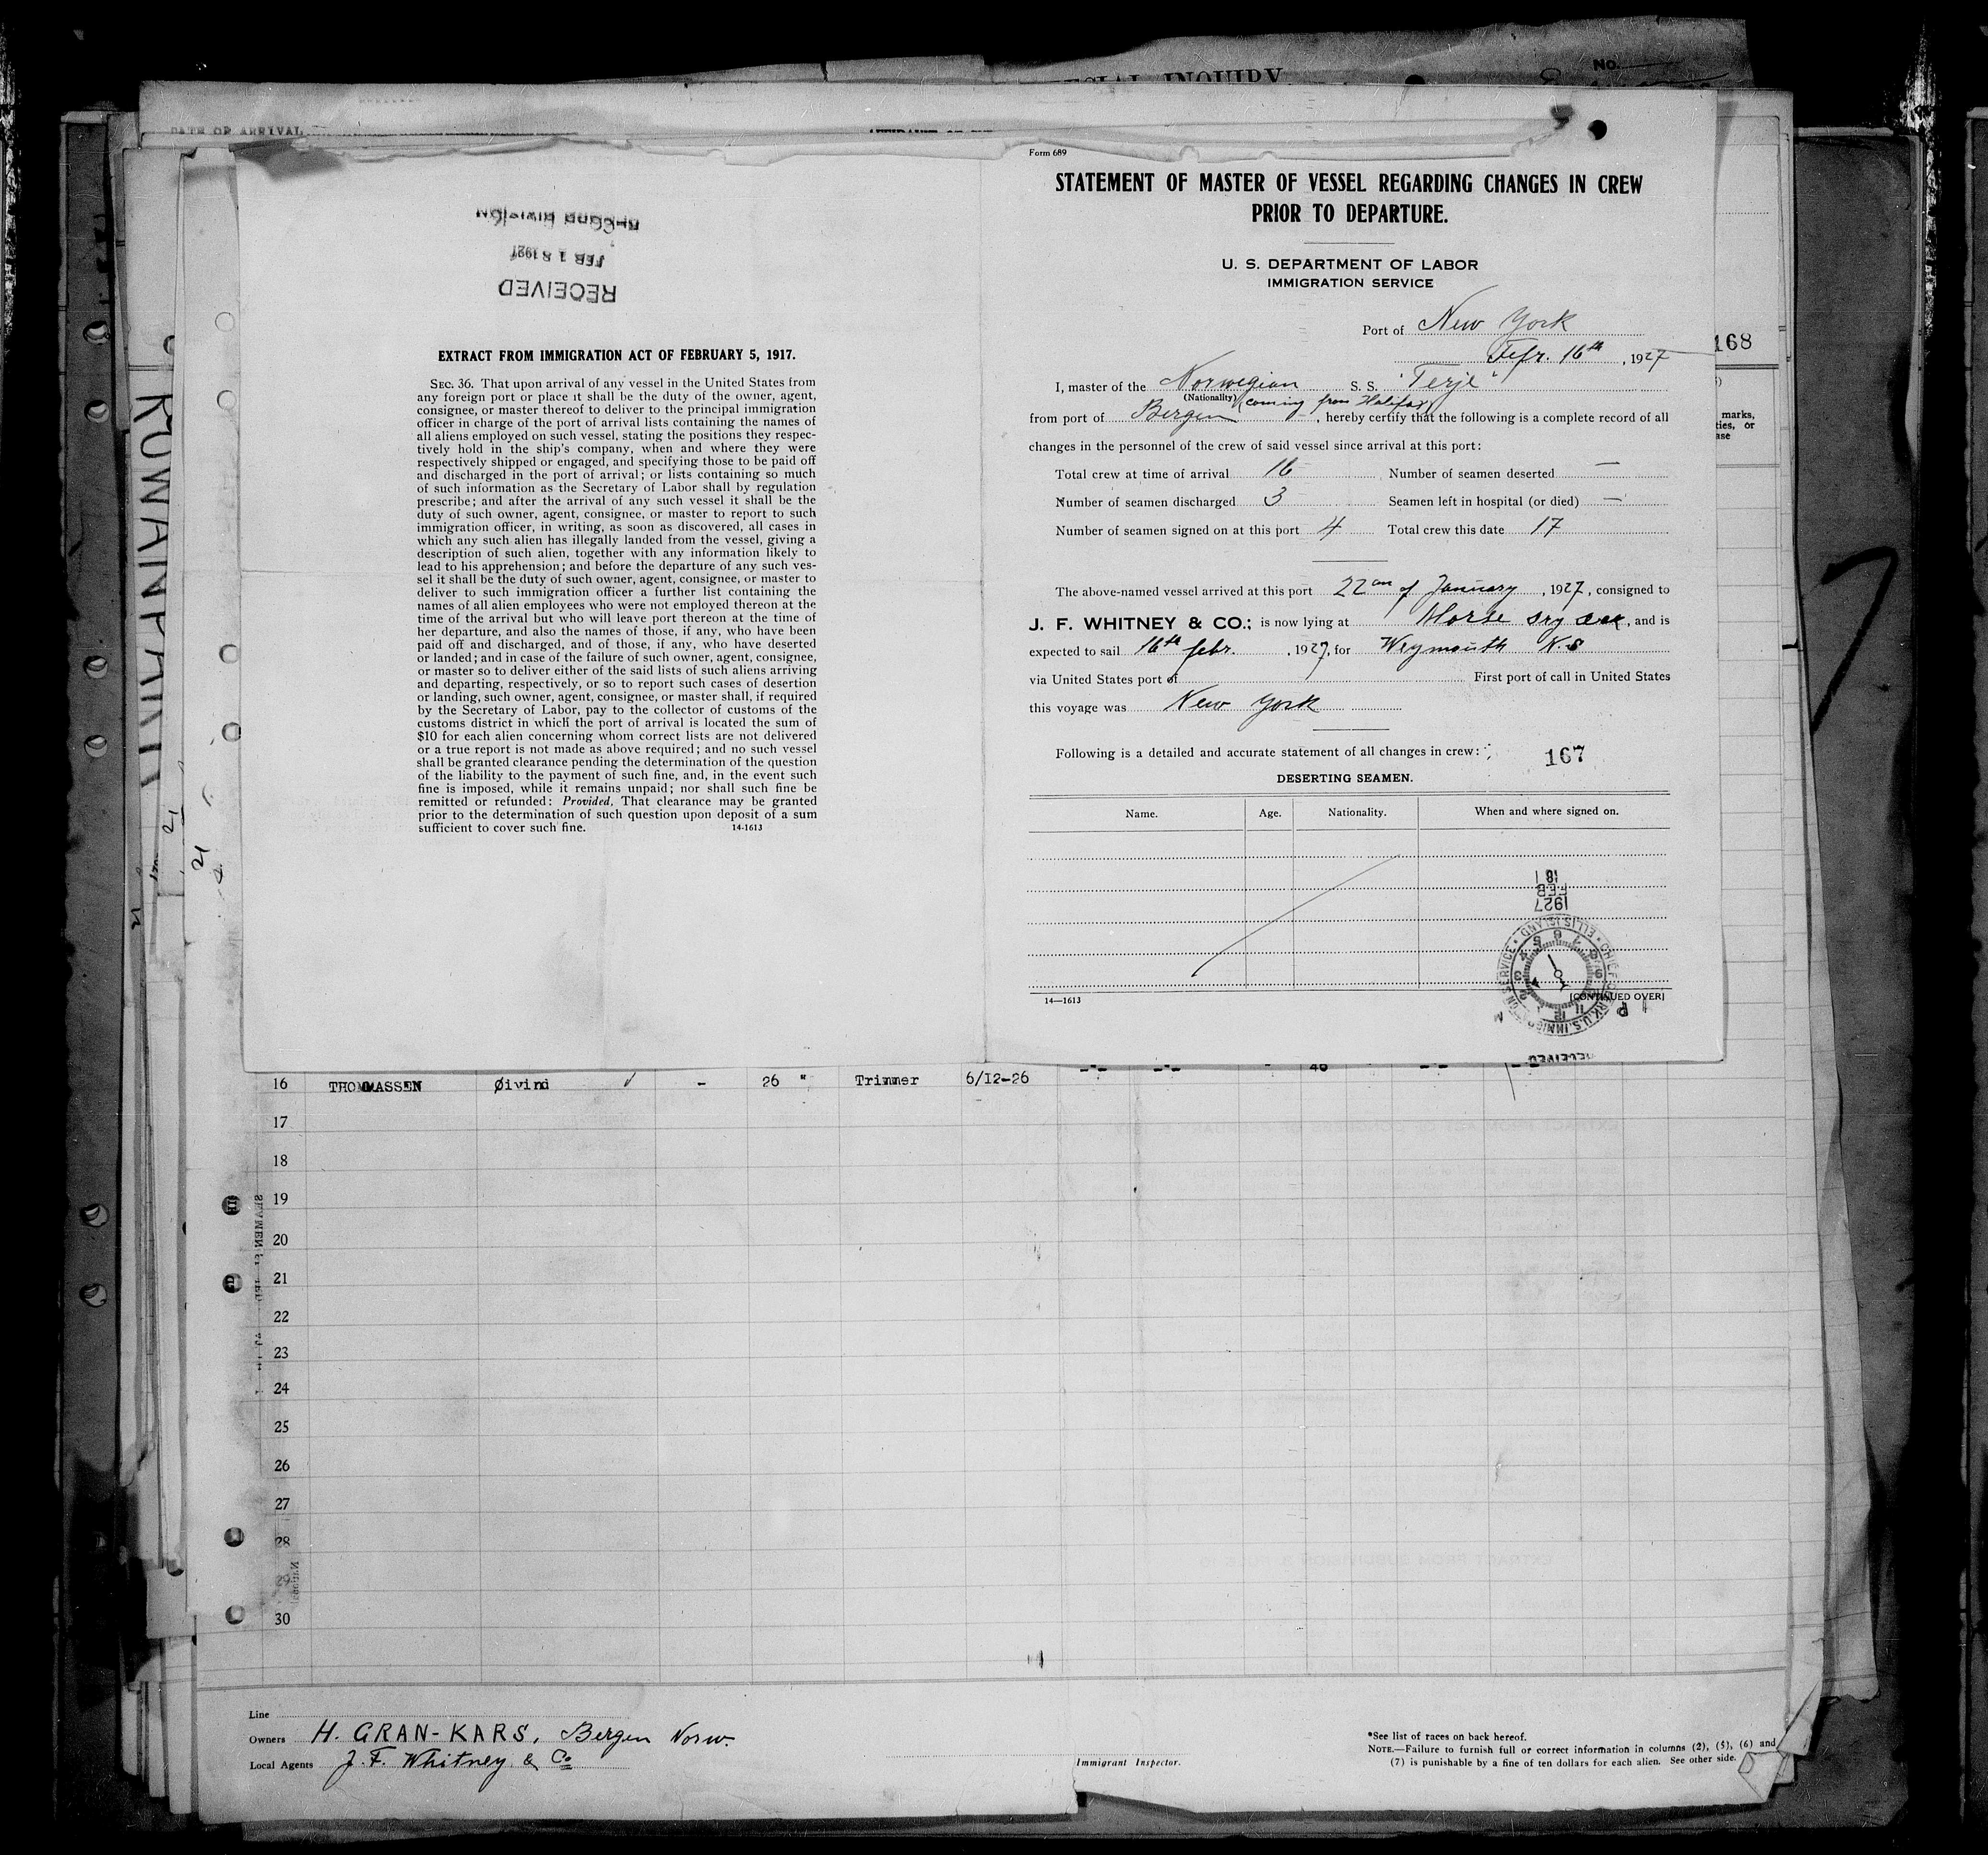 SPECIAL INQUIRY
No.
DATE OF ARRIVAL
RECORD DIVISION
FEB 18 1927
RECEIVED
EXTRACT FROM IMMIGRATION ACT OF FEBRUARY 5, 1917.
SEC. 36. That upon arrival of any vessel in the United States from
any foreign port or place it shall be the duty of the owner, agent,
consignee, or master thereof to deliver to the principal immigration
officer in charge of the port of arrival lists containing the names of
all aliens employed on such vessel, stating the positions they respec-
tively hold in the ship's company, when and where they were
respectively shipped or engaged, and specifying those to be paid off
and discharged in the port of arrival; or lists containing so much
of such information as the Secretary of Labor shall by regulation
prescribe; and after the arrival of any such vessel it shall be the
duty of such owner, agent, consignee, or master to report to such
immigration officer, in writing, as soon as discovered, all cases in
which any such alien has illegally landed from the vessel, giving a
description of such alien, together with any information likely to
lead to his apprehension; and before the departure of any such ves-
sel it shall be the duty of such owner, agent, consignee, or master to
deliver to such immigration officer a further list containing the
names of all alien employees who were not employed thereon at the
time of the arrival but who will leave port thereon at the time of
her departure, and also the names of those, if any, who have been
paid off and discharged, and of those, if any, who have deserted
or landed; and in case of the failure of such owner, agent, consignee,
or master so to deliver either of the said lists of such aliens arriving
and departing, respectively, or so to report such cases of desertion
or landing, such owner, agent, consignee, or master shall, if required
by the Secretary of Labor, pay to the collector of customs of the
customs district in which the port of arrival is located the sum of
$10 for each alien concerning whom correct lists are not delivered
or a true report is not made as above required; and no such vessel
shall be granted clearance pending the determination of the question
of the liability to the payment of such fine, and, in the event such
fine is imposed, while it remains unpaid; nor shall such fine be
remitted or refunded: Provided, That clearance may be granted
prior to the determination of such question upon deposit of a sum
sufficient to cover such fine. 14-1613
Form 689
STATEMENT OF MASTER OF VESSEL REGARDING CHANGES IN CREW
PRIOR TO DEPARTURE.
U. S. DEPARTMENT OF LABOR
IMMIGRATION SERVICE
Port of New York
Febr. 16th, 1927
168
I, master of the Norwegian S. S. "Terje"
(Nationality) (coming from Halifax)
from port of Bergen, hereby certify that the following is a complete record of all
changes in the personnel of the crew of said vessel since arrival at this port:
marks,
ties, or
ase
Total crew at time of arrival 16 Number of seamen deserted —
Number of seamen discharged 3 Seamen left in hospital (or died) —
Number of seamen signed on at this port 4 Total crew this date 17
The above-named vessel arrived at this port 22 of January, 1927, consigned to
J. F. WHITNEY & CO.; is now lying at Morse dry dock, and is
expected to sail 16th febr., 1927, for Weymouth N.S
via United States port of First port of call in United States
this voyage was New York
Following is a detailed and accurate statement of all changes in crew:
167
DESERTING SEAMEN.
Name. Age. Nationality. When and where signed on.
1927
FEB
18
CHIEF CLERK, U.S. IMMIGRATION SERVICE • ELLIS ISLAND •
14—1613 [CONTINUED OVER]
P M
RECEIVED
16 THOMMASSEN Øivind - 26 " Trimmer 6/12-26 -"- -"- 46 -"- -"-
17
18
19
20
21
22
23
24
25
26
27
28
29
30
Line
Owners H. GRAN-KARS, Bergen Norw.
Local Agents J. F. Whitney & Co
Immigrant Inspector.
*See list of races on back hereof.
NOTE.—Failure to furnish full or correct information in columns (2), (5), (6) and
(7) is punishable by a fine of ten dollars for each alien. See other side.